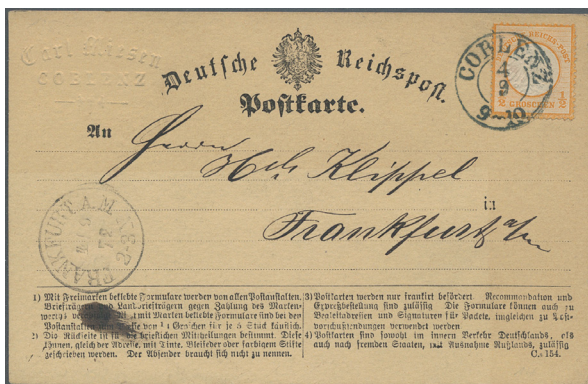 Carl Riesen
COBLENZ
Deutsche Reichspost.
Postkarte.
REICHS-POST
COBLENZ
4
9
9-10
½ GROSCHEN ½
An
Herrn
Klippel
in
Frankfurt a/m
FRANKFURT A. M.
72
2-3
1) Mit Freimarken beklebte Formulare werden von allen Postanstalten,
Briefträgern und Landbriefträgern gegen Zahlung des Marken-
werths verabfolgt. mit Marken beklebte Formulare sind bei den
Postanstalten zum Preise von ¼ Groschen für je 5 Stück käuflich.
2) Die Rückseite ist für die brieflichen Mittheilungen bestimmt. Diese
können, gleich der Adresse, mit Tinte, Bleifeder oder farbigem Stifte
geschrieben werden. Der Absender braucht sich nicht zu nennen.
3) Postkarten werden nur frankirt befördert Recommandation und
Expreßbestellung sind zulässig Die Formulare können auch zu
Begleitadressen und Signaturen für Packete, imgleichen zu Post-
vorschußsendungen verwendet werden
4) Postkarten sind sowohl im innern Verkehr Deutschlands, als
auch nach fremden Staaten, mit Ausnahme Rußlands, zulässig
C. 154.